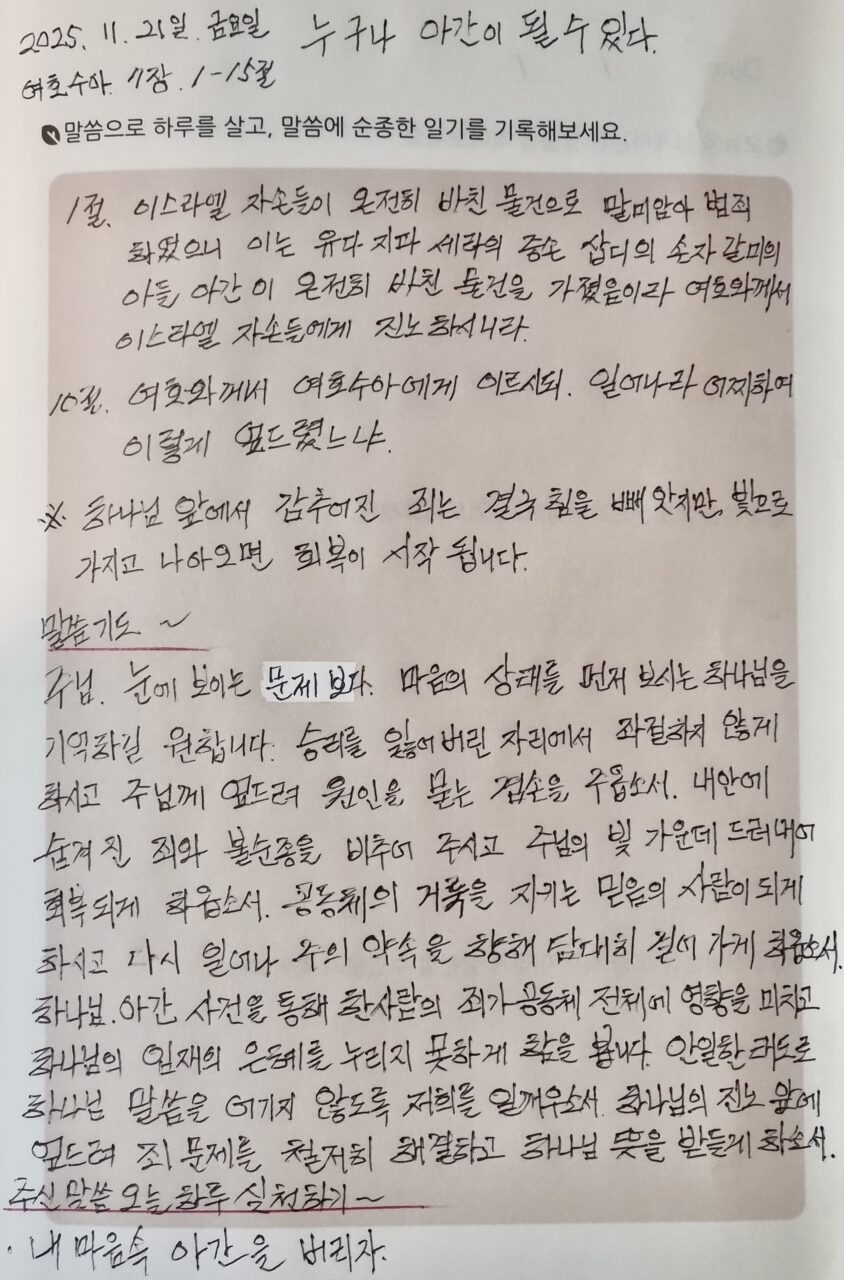 2025. 11. 21일. 금요일 누구나 아간이 될 수 있다.
여호수아. 7장. 1-15절
말씀으로 하루를 살고, 말씀에 순종한 일기를 기록해보세요.
1절. 이스라엘 자손들이 온전히 바친 물건으로 말미암아 범죄
하였으니 이는 유다 지파 세라의 증손 삽디의 손자 갈미의
아들 아간이 온전히 바친 물건을 가졌음이라 여호와께서
이스라엘 자손들에게 진노하시니라.
10절. 여호와께서 여호수아에게 이르시되. 일어나라 어찌하여
이렇게 엎드렸느냐.
※ 하나님 앞에서 감추어진 죄는 결국 힘을 빼앗지만, 빛으로
가지고 나아오면 회복이 시작 됩니다.
말씀기도 ~
주님. 눈에 보이는 문제 보다. 마음의 상태를 먼저 보시는 하나님을
기억하길 원합니다. 승리를 잃어버린 자리에서 좌절하지 않게
하시고 주님께 엎드려 원인을 묻는 겸손을 주옵소서. 내안에
숨겨진 죄와 불순종을 비추어 주시고 주님의 빛 가운데 드러내어
회복되게 하옵소서. 공동체의 거룩을 지키는 믿음의 사람이 되게
하시고 다시 일어나 주의 약속을 향해 담대히 걸어 가게 하옵소서.
하나님. 아간 사건을 통해 한사람의 죄가 공동체 전체에 영향을 미치고
하나님의 임재의 은혜를 누리지 못하게 함을 봅니다. 안일한 태도로
하나님 말씀을 여기지 않도록 저희를 일깨우소서. 하나님의 진노 앞에
엎드려 죄 문제를 철저히 해결하고 하나님 뜻을 받들게 하소서.
주신 말씀 오늘 하루 실천하기~
· 내 마음속 아간을 버리자.